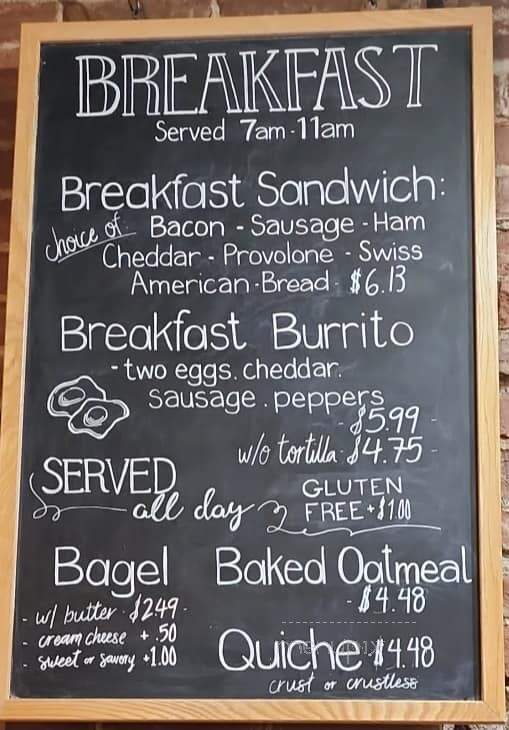 BREAKFAST
Served 7am-11am
Breakfast Sandwich:
choice of: Bacon - Sausage - Ham
Cheddar - Provolone - Swiss
American - Bread - $6.13
Breakfast Burrito
- two eggs. cheddar.
sausage . peppers
- $5.99 -
w/o tortilla - $4.75 -
SERVED
all day
GLUTEN
FREE + $1.00
Bagel
- w/ butter - $2.49 -
- cream cheese + .50
- sweet or savory +1.00
Baked Oatmeal
- $4.48
Quiche $4.48
crust or crustless